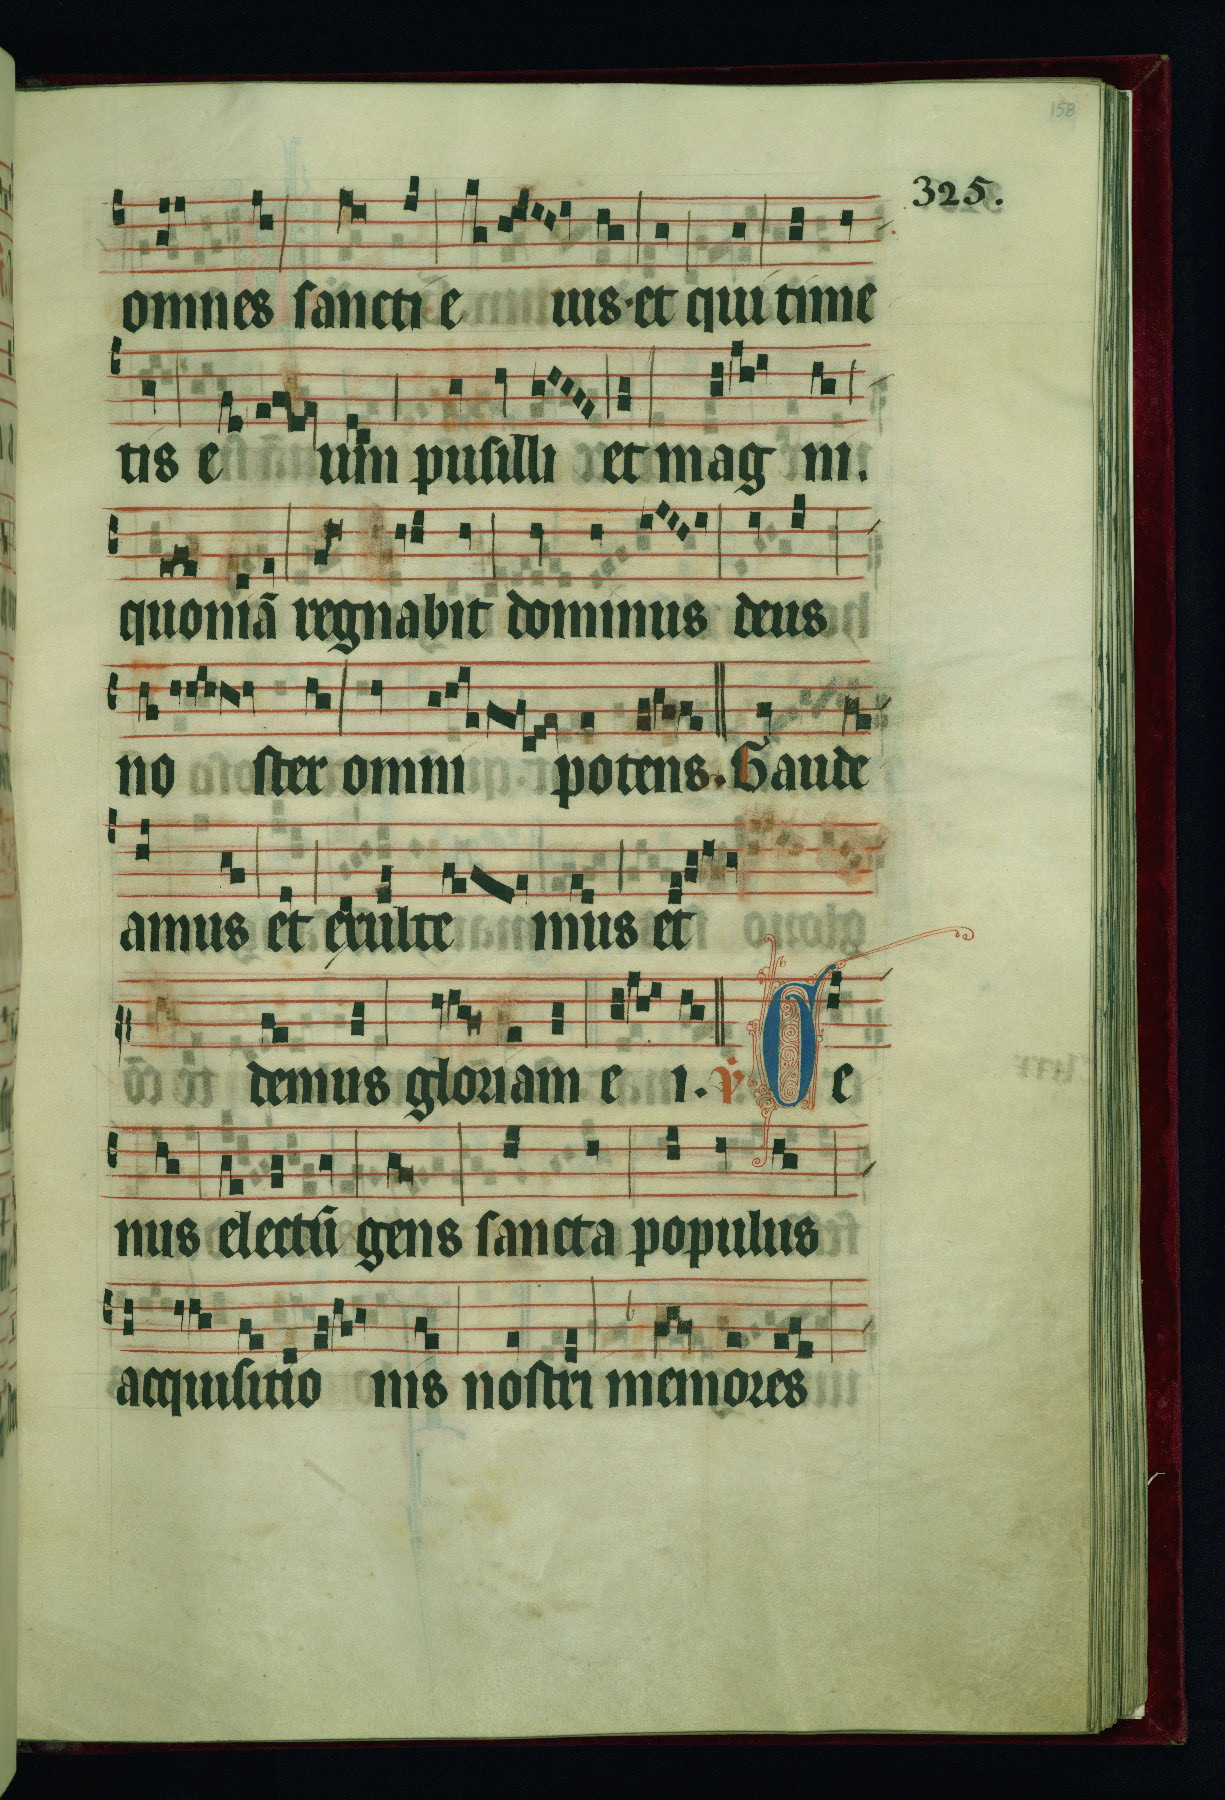 158
325.
omnes sancti e ius·et qui time
tis e um pusilli et mag ni.
quoniã regnabit dominus deus
no ster omni potens. Gaude
amus et exulte mus et
demus gloriam e i. v̄ Ge
nus electũ gens sancta populus
acquisitio nis nostri memores